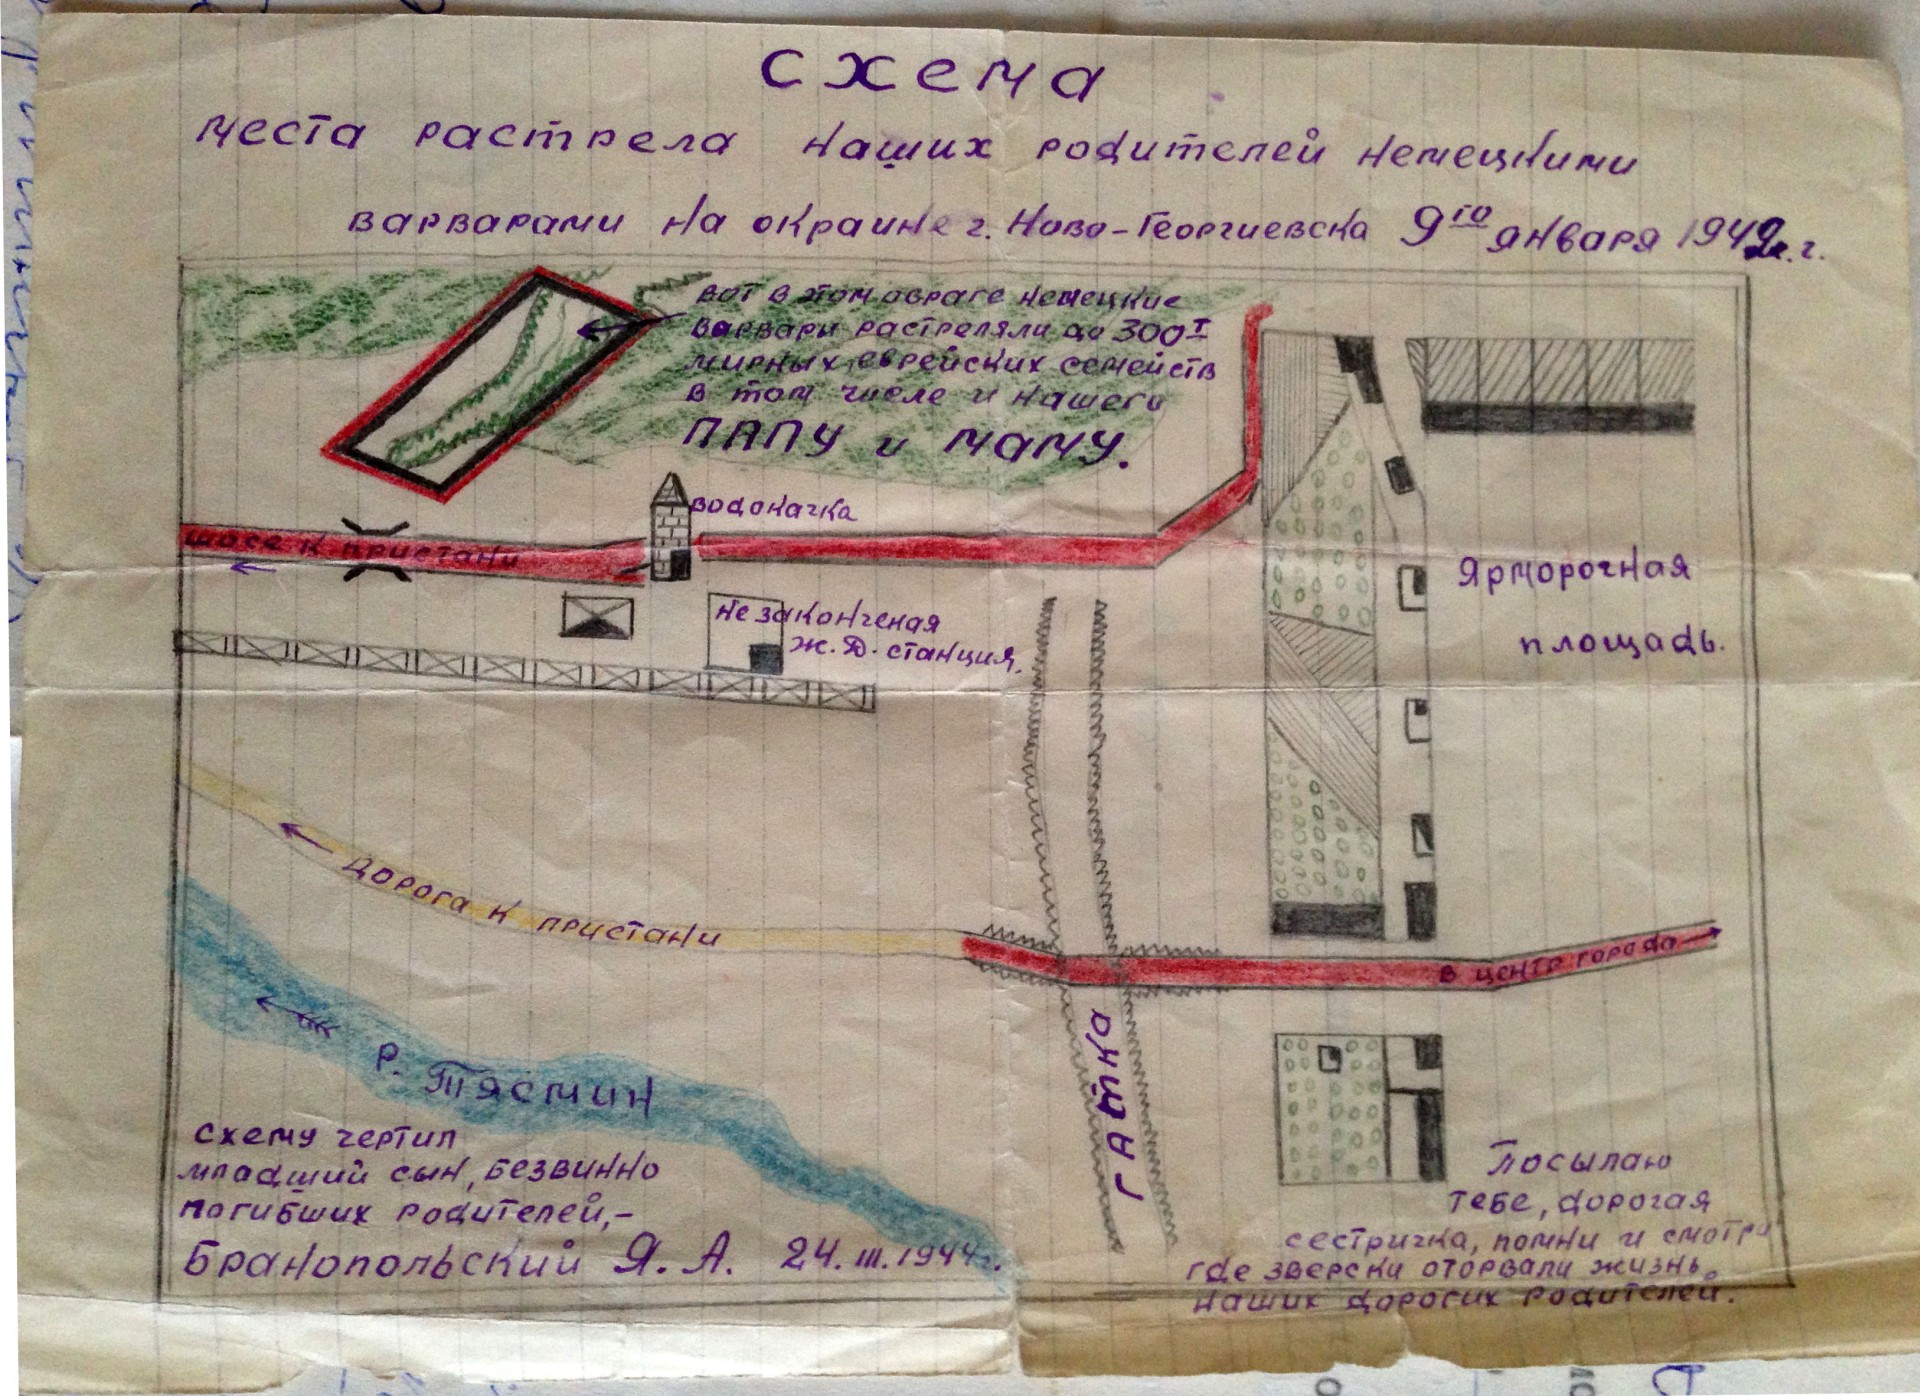 схема
места растрела наших родителей немецкими
варварами на окраине г. Ново-Георгиевска 9го января 1942 г.
вот в этом овраге немецкие
варвары растреляли до 300т
мирных еврейских семейств
в том числе и нашего
ПАПУ и МАМУ.
водокачка
шосе к пристани
не законченая
ж.д. станция.
Ярморочная
площадь.
дорога к пристани
в центр города
р. Тясмин
ГАТКА
схему чертил
младший сын, безвинно
погибших родителей,-
Бранопольский Я. А. 24.III.1944г.
Посылаю
тебе, дорогая
сестричка, помни и смотри
где зверски оторвали жизнь
наших дорогих родителей.